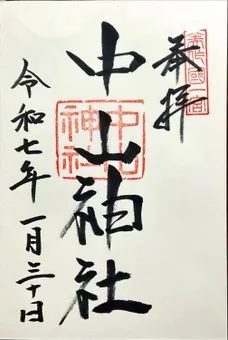 美作國一宮
奉拝
中山神社
中山神社
令和七年一月三十日